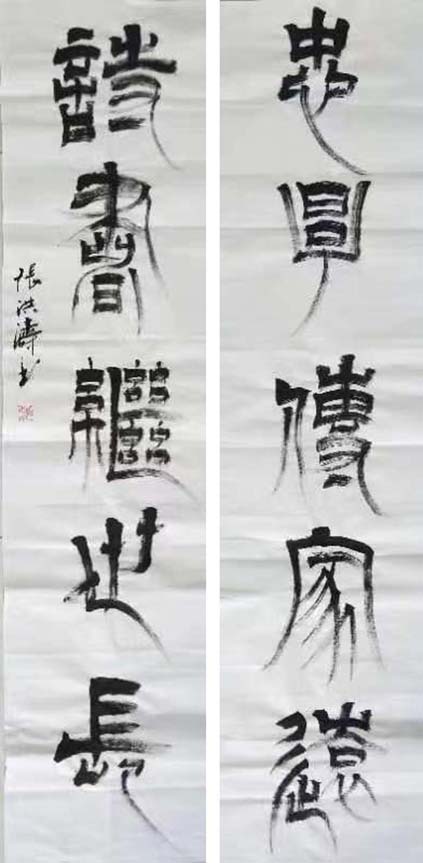 忠厚傳家遠
詩書繼世長
張洪濤书